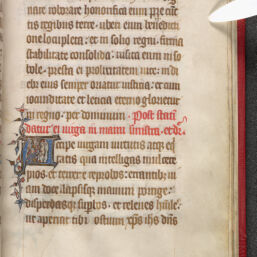 nare roborare honorifica eum pre cunc
tis regibus terre. uberi eum benedicti
one locupleta. et in solio regni firma
stabilitate consolida. visita eum in so
bole. presta ei prolixitatem vite. in di
ebus eius semper oriatur iusticia. et cum
iocunditate et leticia eterno glorietur
in regno. per dominum. Post statim
datur ei virga in manu sinistra. et dicitur
Accipe virgam virtutis atque equi
tatis qua intelligas mulcere
pios et terrere reprobos. errantibus vi
am doce lapsisque manum porrige.
disperdasque superbos et releves humiles
ut aperiat tibi ostium xps ihs dns